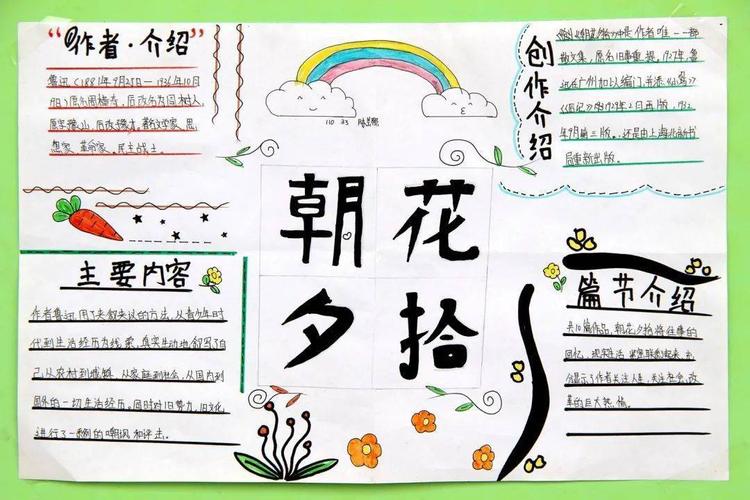 “作者·介绍”
鲁迅（1881年9月25日—1936年10月
19日）原名周樟寿，后改名为周树人，
原字豫山，后改豫才，著名文学家、思
想家、革命家、民主战士。
创作介绍
散文集，原名旧事重提，1927年，鲁
迅在广州加以编订，并添《小引》
《后记》1928年2月再版，1932
年9月第三版，还是由上海北新书
局重新出版。
110 23
朝花
夕拾
主要内容
作者鲁迅用了夹叙夹议的方法，从青少年时
代到生活经历为线索，真实生动地叙写了自
己从农村到城镇，从家庭到社会，从国内到
国外的一切生活经历，同时对旧势力，旧文化，
进行了一系列的嘲讽和评击。
篇节介绍
共10篇作品，朝花夕拾将往事的
回忆，现实生活，紧密联系起来，充
分显示了作者关注人生，关注社会，改
革的巨大热情。